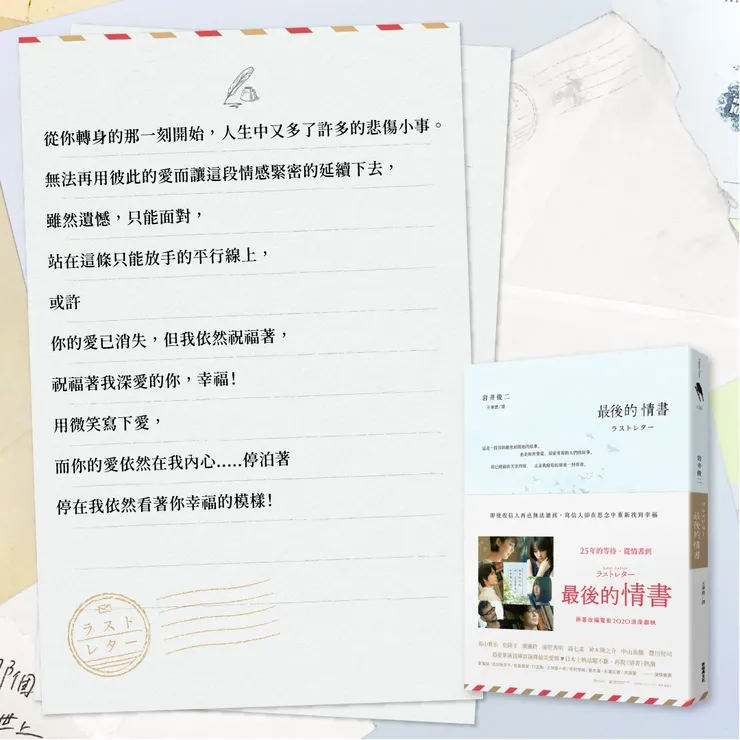 從你轉身的那一刻開始，人生中又多了許多的悲傷小事。
無法再用彼此的愛而讓這段情感緊密的延續下去，
雖然遺憾，只能面對，
站在這條只能放手的平行線上，
或許
你的愛已消失，但我依然祝福著，
祝福著我深愛的你，幸福！
用微笑寫下愛，
而你的愛依然在我內心.....停泊著
停在我依然看著你幸福的模樣！
ラスト
レター
那個
世上
岩井俊二
王華懋/譯
最後的情書
ラストレター
即使收信人再也無法讀到，寫信人卻在思念中重新找到幸福
25年的等待，從情書到
ラストレター
最後的情書
原著改編電影2020浪漫獻映
岩井俊二
最後的情書
王華懋/譯